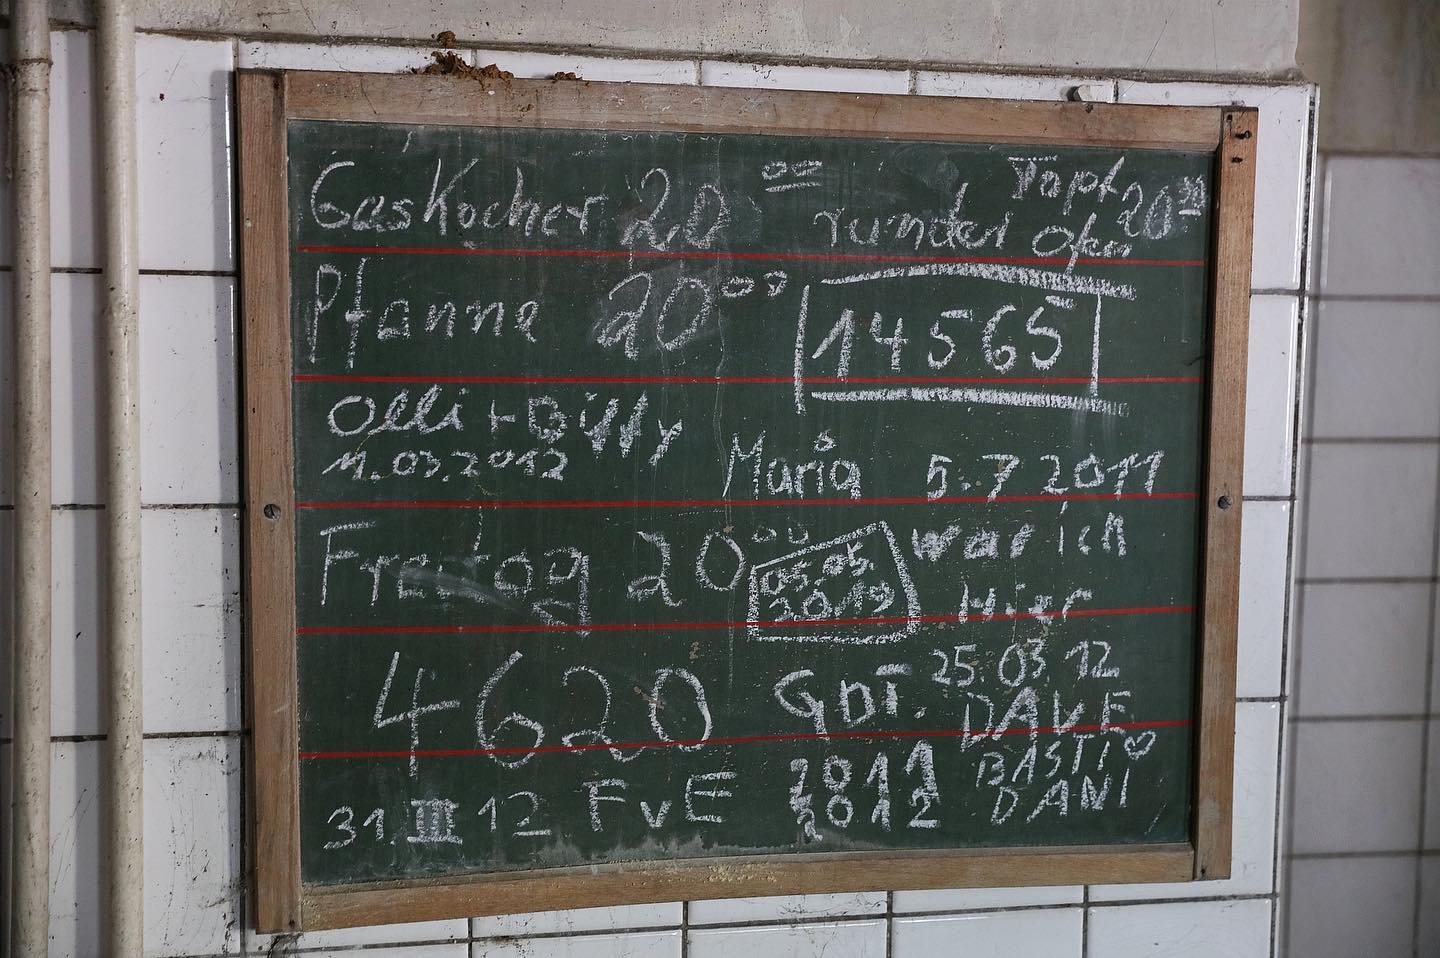 Gaskocher 20 00
Topf 20 30
runder Ofen
Pfanne 20 00
14565
Olli + Billy
11.03.2012
Maria 5.7 2011
Freitag 20 00
05.05.
2019
war ich
Hier
4620
GDT.
25.03.12
DAVE
2011
BASTI ♡
2012
DANI
31.III 12 FvE